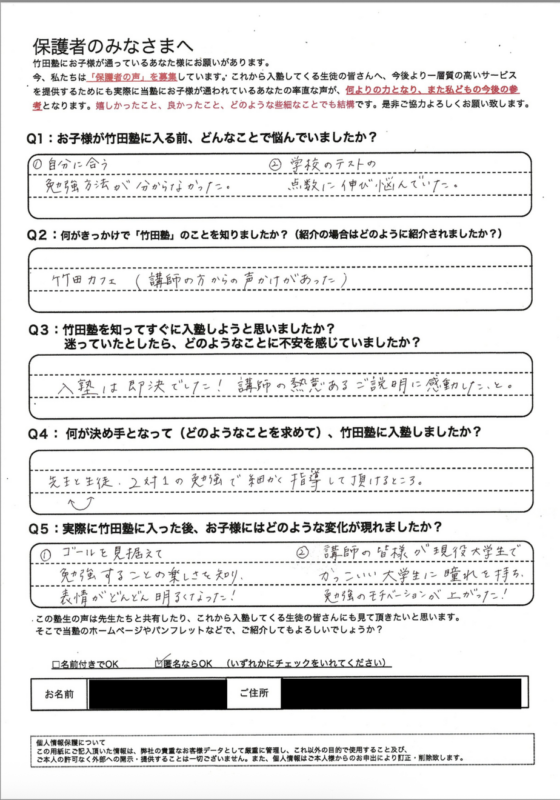 保護者のみなさまへ
竹田塾にお子様が通っているあなた様にお願いがあります。
今、私たちは「保護者の声」を募集しています。これから入塾してくる生徒の皆さんへ、今後より一層質の高いサービス
を提供するためにも実際に当塾にお子様が通われているあなたの率直な声が、何よりの力となり、また私どもの今後の参
考となります。嬉しかったこと、良かったこと、どのような些細なことでも結構です。是非ご協力よろしくお願い致します。
Q1：お子様が竹田塾に入る前、どんなことで悩んでいましたか？
①自分に合う ②学校のテストの
勉強方法が分からなかった。 点数に伸び悩んでいた。
Q2：何がきっかけで「竹田塾」のことを知りましたか？（紹介の場合はどのように紹介されましたか？）
竹田カフェ（講師の方からの声かけがあった）
Q3：竹田塾を知ってすぐに入塾しようと思いましたか？
迷っていたとしたら、どのようなことに不安を感じていましたか？
入塾は即決でした！講師の熱意あるご説明に感動したこと。
Q4： 何が決め手となって（どのようなことを求めて）、竹田塾に入塾しましたか？
先生と生徒、2対1の勉強で細かく指導して頂けるところ。
Q5：実際に竹田塾に入った後、お子様にはどのような変化が現れましたか？
① ゴールを見据えて ② 講師の皆様が現役大学生で
勉強することの楽しさを知り、 かっこいい大学生に憧れを持ち、
表情がどんどん明るくなった！ 勉強のモチベーションが上がった！
この塾生の声は先生たちと共有したり、これから入塾してくる生徒の皆さんにも見て頂きたいと思います。
そこで当塾のホームページやパンフレットなどで、ご紹介してもよろしいでしょうか？
□名前付きでOK ☑匿名ならOK （いずれかにチェックをいれてください）
お名前 ご住所
個人情報保護について
この用紙にご記入頂いた情報は、弊社の貴重なお客様データとして厳重に管理し、これ以外の目的で使用すること及び、
ご本人の許可なく外部への開示・提供することは一切ございません。また、個人情報はご本人様からのお申出により訂正・削除致します。